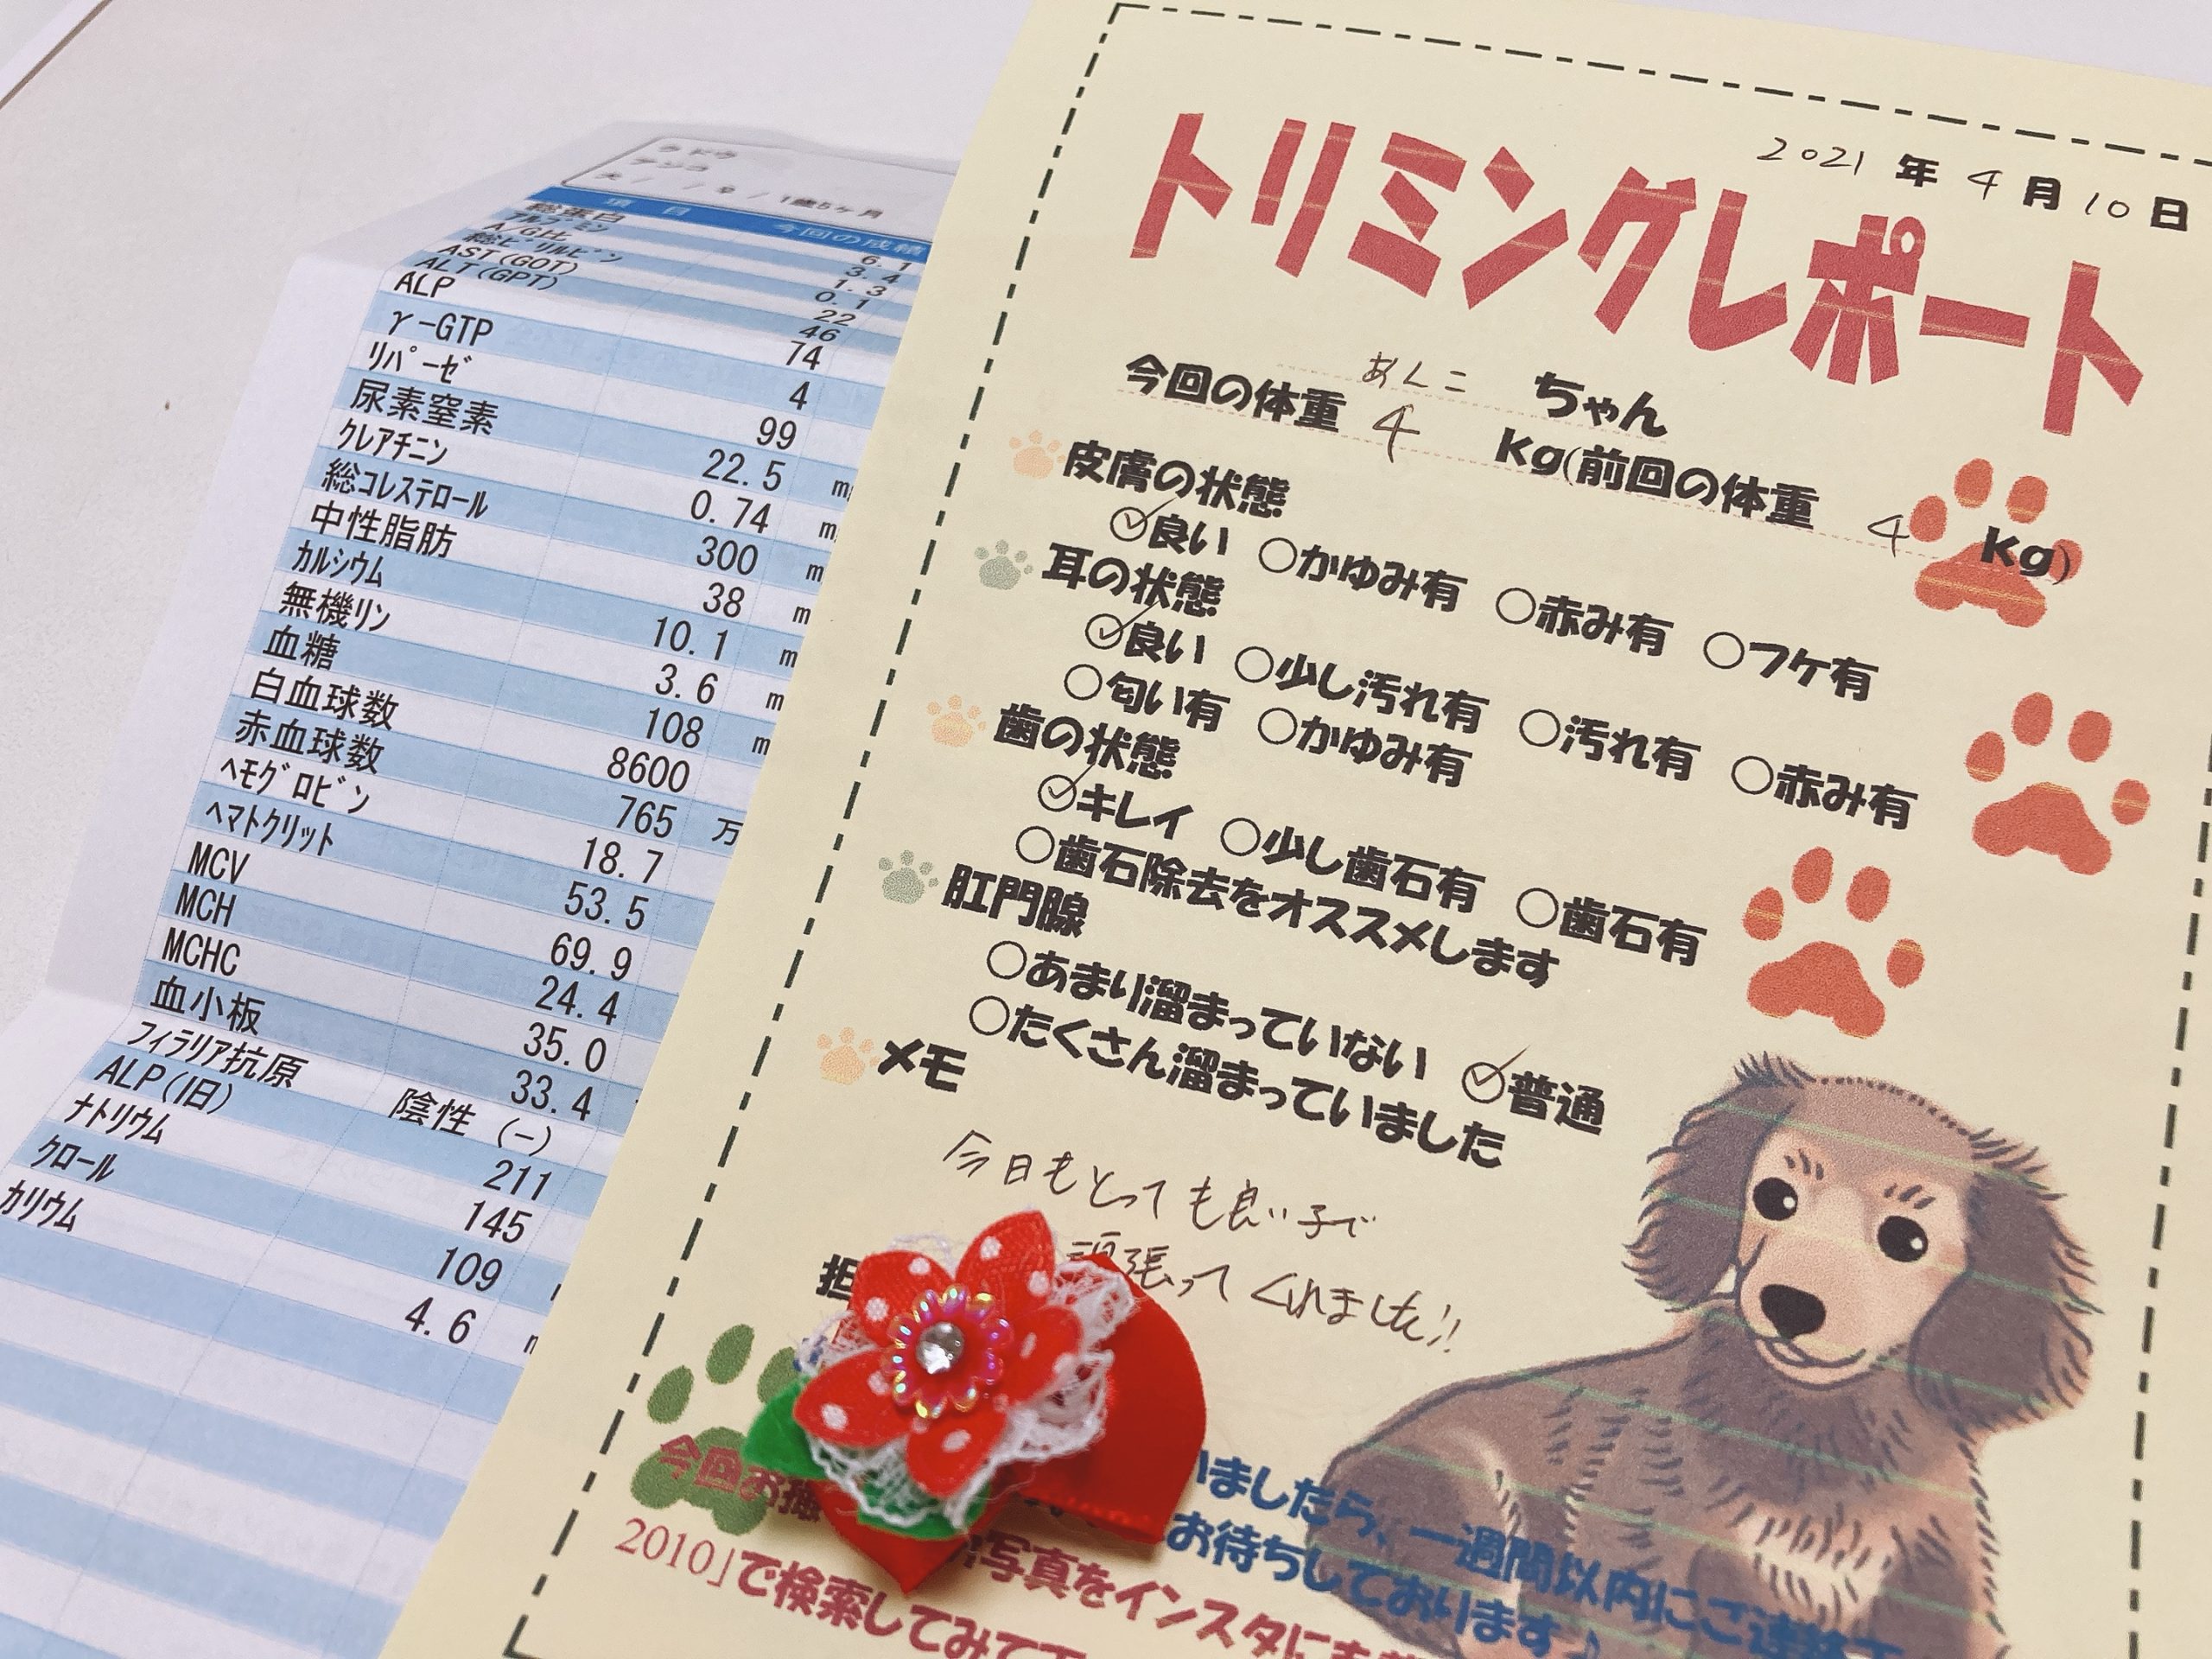 1歳5ヶ月
項 目 今回の成績
総蛋白 6.1
アルブミン 3.4
A/G比 1.3
総ビリルビン 0.1
AST(GOT) 22
ALT(GPT) 46
ALP 74
γ-GTP 4
リパーゼ 99
尿素窒素 22.5 m
クレアチニン 0.74 m
総コレステロール 300 m
中性脂肪 38 m
カルシウム 10.1 m
無機リン 3.6 m
血糖 108 m
白血球数 8600
赤血球数 765 万
ヘモグロビン 18.7
ヘマトクリット 53.5
MCV 69.9
MCH 24.4
MCHC 35.0
血小板 33.4
フィラリア抗原 陰性 (-)
ALP(旧) 211
ナトリウム 145
クロール 109
カリウム 4.6
2021 年 4 月 10 日
トリミングレポート
あんこ ちゃん
今回の体重 4 kg(前回の体重 4 kg)
皮膚の状態
良い ○かゆみ有 ○赤み有 ○フケ有
耳の状態
良い ○少し汚れ有 ○汚れ有 ○赤み有
○匂い有 ○かゆみ有
歯の状態
キレイ ○少し歯石有 ○歯石有
○歯石除去をオススメします
肛門腺
○あまり溜まっていない 普通
○たくさん溜まっていました
メモ
今日もとっても良い子で
頑張ってくれました!!
担
いましたら、一週間以内にご連絡下
お待ちしております♪
今回お撮 写真をインスタにも
2010」で検索してみて下